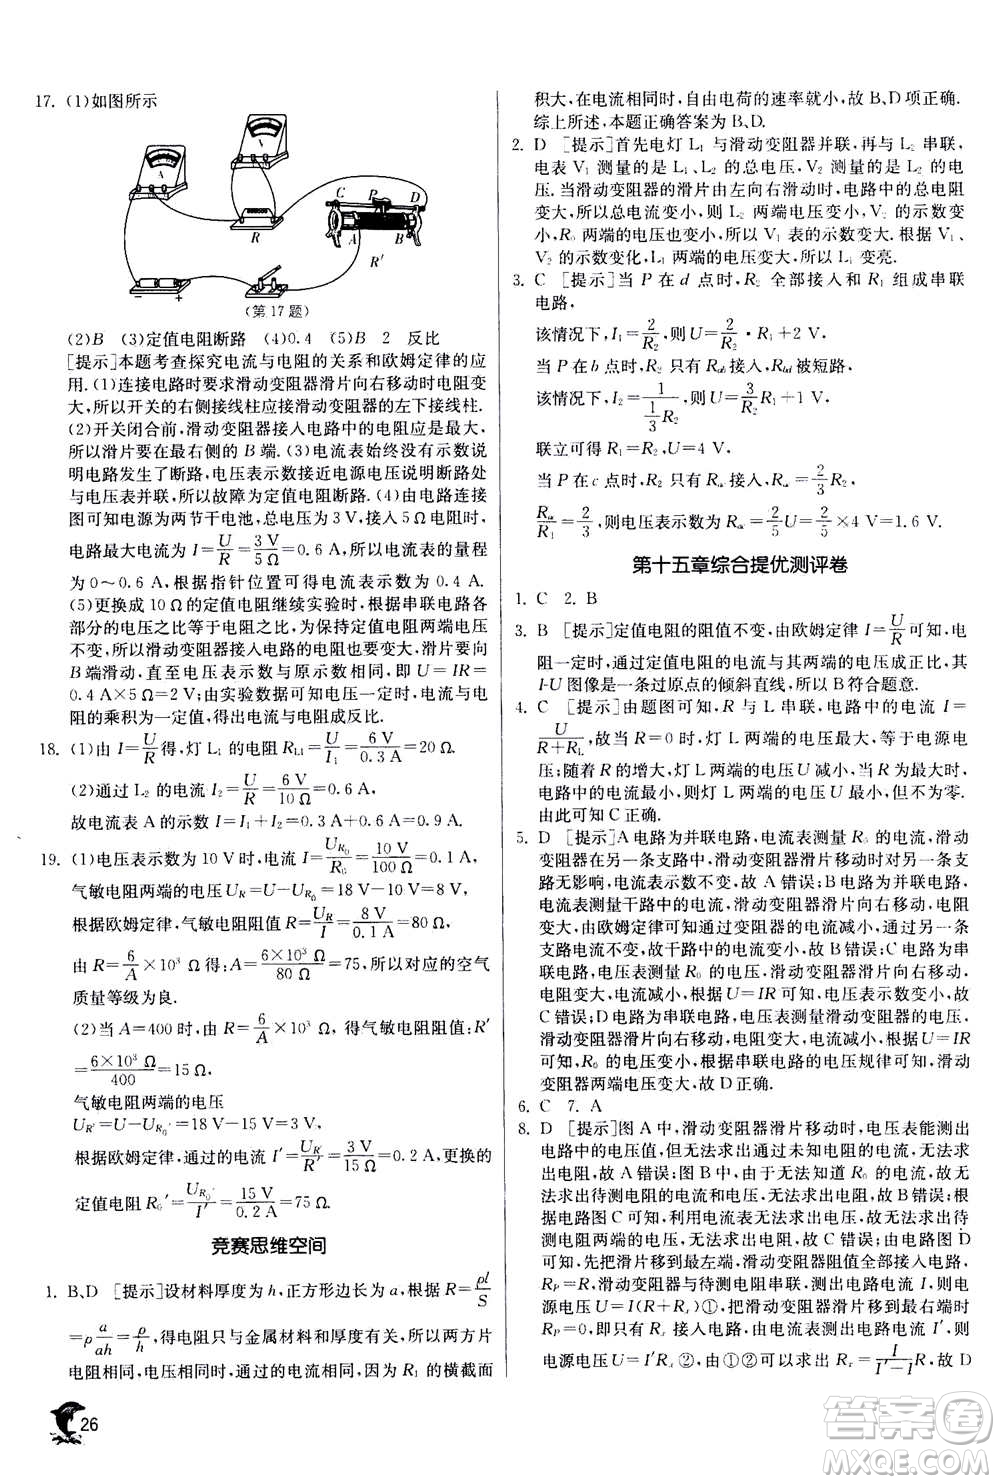 17. (1)如图所示
A
V
C P D
R
A B
R′
− +
(第17题)
(2)B (3)定值电阻断路 (4)0.4 (5)B 2 反比
[提示]本题考查探究电流与电阻的关系和欧姆定律的应
用.(1)连接电路时要求滑动变阻器滑片向右移动时电阻变
大,所以开关的右侧接线柱应接滑动变阻器的左下接线柱.
(2)开关闭合前,滑动变阻器接入电路中的电阻应是最大,
所以滑片在最右侧的 B 端.(3)电流表始终没有示数说
明电路发生了断路,电压表示数接近电源电压说明断路处
与电压表并联,所以故障为定值电阻断路.(4)由电路连接
图可知电源为两节干电池,总电压为 3 V,接入 5 Ω 电阻时,
电路最大电流为 I=U/R=3 V/5 Ω=0.6 A,所以电流表的量程
为 0～0.6 A,根据指针位置可得到电流表示数为 0.4 A.
(5)更换成 10 Ω 的定值电阻继续实验时,根据串联电路各
部分的电压之比等于电阻之比,为保持定值电阻两端电压
不变,所以滑动变阻器接入电路的电阻要变大,滑片要向
B 端滑动,直至电压表示数与原示数相同,即 U=IR=
0.4 A×5 Ω=2 V;由实验数据可知电压一定时,电流与电
阻的乘积为一定值,得出电流与电阻成反比.
18. (1)由 I=U/R得,灯 L₁ 的电阻 R_L1=U/I₁=6 V/0.3 A=20 Ω.
(2)通过 L₂ 的电流 I₂=U/R=6 V/10 Ω=0.6 A,
故电流表 A 的示数 I=I₁+I₂=0.3 A+0.6 A=0.9 A.
19. (1)电压表示数为 10 V 时,电流 I=U_R₀/R₀=10 V/100 Ω=0.1 A,
气敏电阻两端的电压 U_R=U−U_R₀=18 V−10 V=8 V,
根据欧姆定律,气敏电阻阻值 R=U_R/I=8 V/0.1 A=80 Ω,
由 R=6/A×10³ Ω 得:A=6×10³ Ω/80 Ω=75,所以对应的空气
质量等级为良.
(2)当 A=400 时,由 R=6/A×10³ Ω 得气敏电阻阻值:R′
=6×10³ Ω/400=15 Ω,
气敏电阻两端的电压
U_R′=U−U_R₀′=18 V−15 V=3 V,
根据欧姆定律,通过的电流 I′=U_R′/R′=3 V/15 Ω=0.2 A,更换的
定值电阻 R₀′=U_R₀′/I′=15 V/0.2 A=75 Ω.
竞赛思维空间
1. B、D [提示]设材料厚度为 h,正方形边长为 a,根据 R=ρl/S
=ρa/ah=ρ/h,得电阻只与金属材料和厚度有关,所以两方片
电阻相同,电压相同时,通过的电流相同,因为 R₁ 的横截面
积大,在电流相同时,自由电荷的速率就小,故 B、D 项正确.
综上所述,本题正确答案为 B、D.
2. D [提示]首先电灯 L₁ 与滑动变阻器并联,再与 L₂ 串联,
电表 V₁ 测量的是 L₁、L₂ 的总电压,V₂ 测量的是 L₂ 的电
压.当滑动变阻器的滑片由左向右滑动时,电路中的总电阻
变大,所以总电流变小,则 L₂ 两端电压变小,V₂ 的示数变
小,R₀ 两端的电压也变小,所以 V₁ 表的示数变大.根据 V₁、
V₂ 的示数变化,可知 L₁ 两端的电压变大,所以 L₁ 变亮.
3. C [提示]当 P 在 d 点时,R₂ 全部接入和 R₁ 组成串联
电路,
该情况下,I₁=2/R₂,则 U=2/R₂·R₁+2 V,
当 P 在 b 点时,R₂ 只有 R_ab 接入,R_bd 被短路,
该情况下,I₂=1/(1/3 R₂),则 U=3/R₂ R₁+1 V,
联立可得 R₁=R₂,U=4 V,
当 P 在 c 点时,R₂ 只有 R_ac 接入,R_ac=2/3 R₂,
R_ac/R₁=2/3,则电压表示数为 R_ac=2/5 U=2/5×4 V=1.6 V.
第十五章综合提优测评卷
1. C 2. B
3. B [提示]定值电阻的阻值不变,由欧姆定律 I=U/R 可知,电
阻一定时,通过定值电阻的电流与其两端的电压成正比,其
I-U 图像是一条过原点的倾斜直线,所以 B 符合题意.
4. C [提示]由题图可知,R 与 L 串联,电路中的电流 I=
U/(R+R_L),故当 R=0 时,灯 L 两端的电压最大,等于电源电
压;随着 R 的增大,灯 L 两端的电压 U 减小,但不能减小到零.
由此可知 C 正确.
5. D [提示]A 电路为并联电路,电流表测量 R₀ 的电流,滑动
变阻器在另一条支路中,滑动变阻器滑片移动时对另一条支
路无影响,电流表示数不变,故 A 错误;B 电路为并联电路,
电流表测量干路中的电流,滑动变阻器滑片向右移动,电阻
变大,由欧姆定律可知通过变阻器的电流减小,另一条
支路电流不变,故干路中的电流变小,故 B 错误;C 电路为串
联电路,电压表测量 R₀ 的电压,滑动变阻器滑片向右移动,电
阻变大,电流减小,根据 U=IR 可知,电压表示数变小,故 C
错误;D 电路为串联电路,电压表测量滑动变阻器的电压,
滑动变阻器滑片向右移动,电阻变大,电流减小,根据 U=IR
可知,R₀ 的电压变小,根据串联电路的电压规律可知,滑动
变阻器两端电压变大,故 D 正确.
6. C 7. A
8. D [提示]图 A 中,滑动变阻器滑片移动时,电压表能测出
电路中的电压值,但无法求出通过未知电阻的电流,故无法
求出电阻,故 A 错误;图 B 中,由于无法知道 R₀ 的电流,无法
求出待测电阻的电流和电压,无法求出电阻,故 B 错误;根
据电路图 C 可知,利用电流表无法求出电压,故无法求出待
测电阻的阻值和电源电压,故 C 错误;由电路图 D 可
知,图片中滑片移到最左端时,滑动变阻器阻值全部接入电路,
R_P=R,滑动变阻器与待测电阻串联,测出电路电流 I,则
电源电压 U=I(R+R_x)①,把滑动变阻器滑片移到最右端时
R_P=0,即只有 R_x 接入电路,测出此时电路电流 I′,则
电源电压 U=I′R_x ②,由①②可以求出 R_x=I/(I′−I) R,故 D
26
答案圈
MXQE.COM